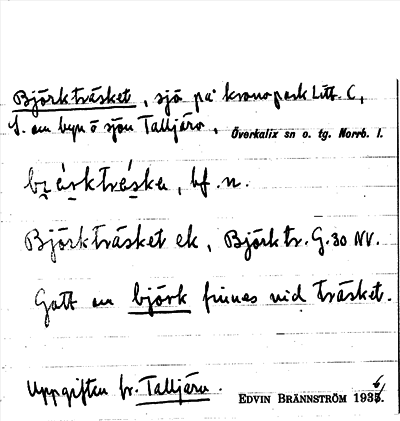 Björkträsket, sjö på kronopark Litt. C,
S. om byn o sjön Talljärv. Överkalix sn o. tg. Norrb. l.
bf. n.
Björkträsket ek, Björktr. G. 30 NV.
Gott om björk finnes vid träsket.
Uppgiften fr. Talljärv.
EDVIN BRÄNNSTRÖM 1936.